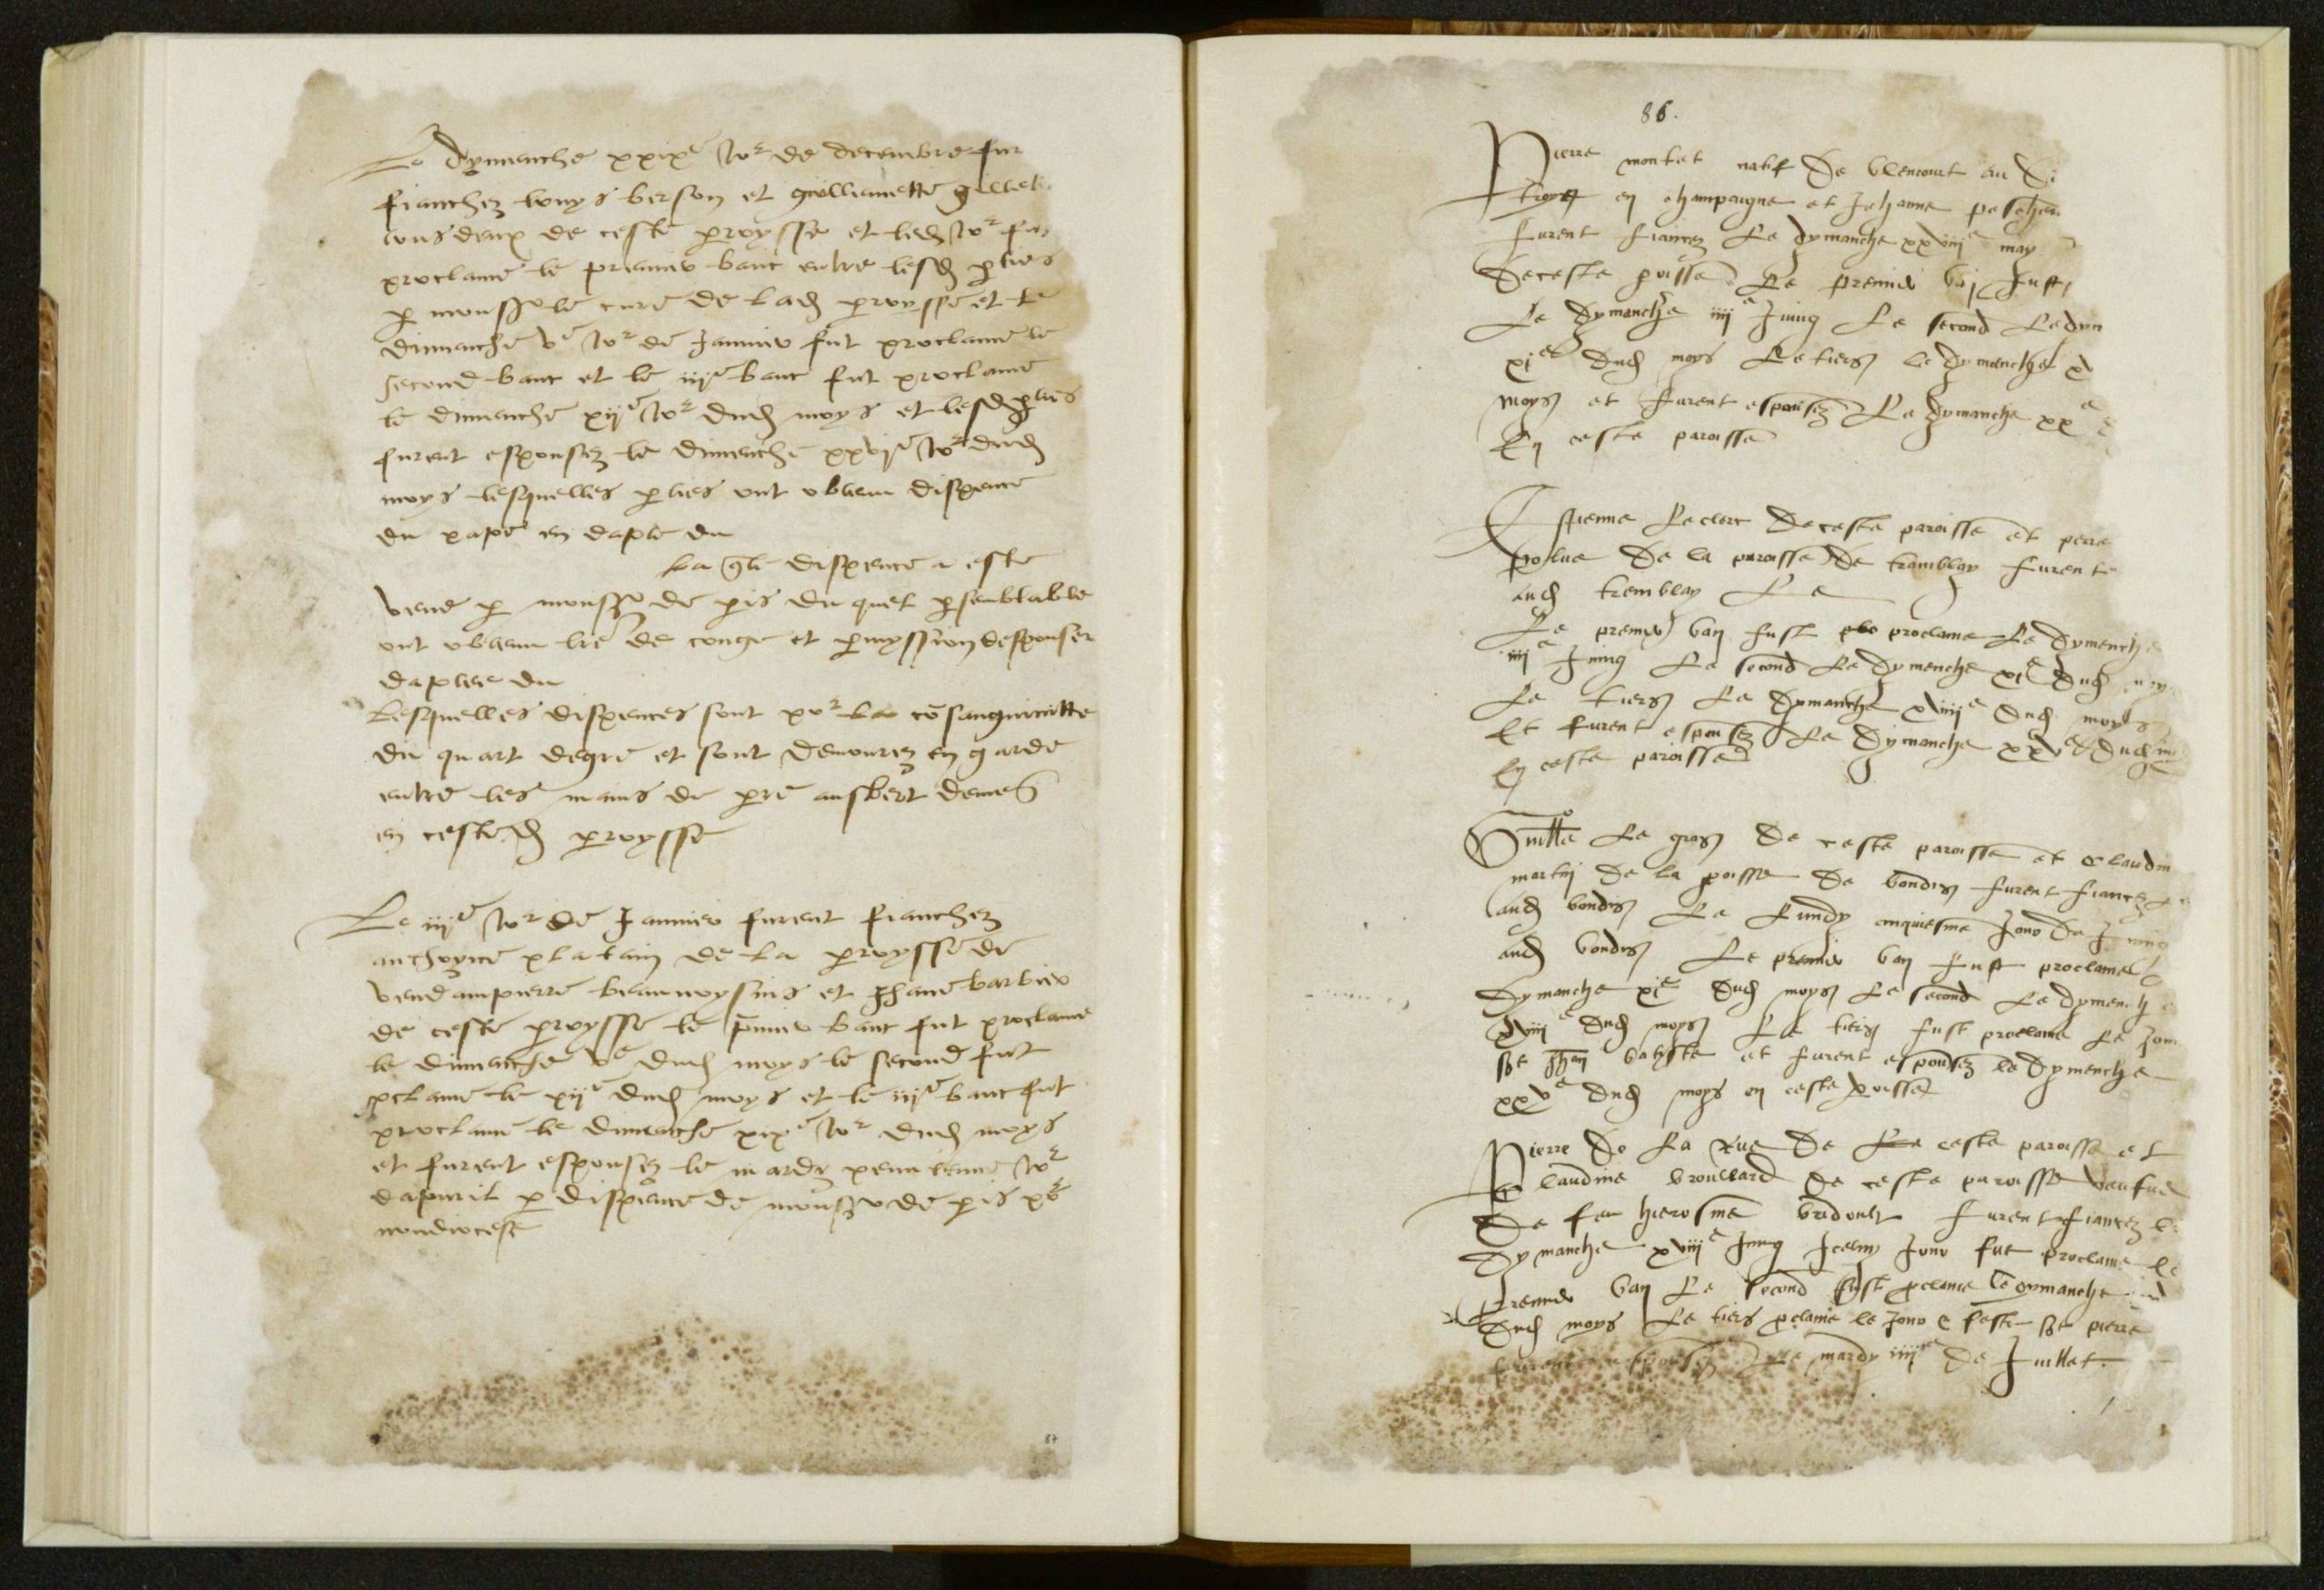 Le dymenche xxixe jor de decembre fur
fianchez louys berson et guillemette gillet
tous deux de ceste proysse et led jor fu
proclame le premier banc entre lesd pties
p monsr le cure de lad proysse et le
dimenche ve jor de Janvier fut proclame le
second banc et le iije banc fut proclame
le dimenche xije jor dud moys et lesd pties
furent espousez le dimenche xxvje jor dud
moys lesquelles pties ont obtenu dispence
du pape en dapte du
la qlle dispence a este
veue p monsr de pis du quel psemblable
ont obtenu lre de conge et pmyssion despouser
daptee du
Lesquelles dispences sont por la cōsanguinitte
du quart degre et sont demourez en garde
entre les mains de pre ausbert deme
en cested proysse
Le iije jor de Janvier furent fianchez
anthoyne platain de la proysse de
vendampierre beauvoysins et Jhane barbier
de ceste proysse le pmier banc fut proclame
le dimenche ve dud moys le second fut
pclame le xije dud moys et le iije banc fut
proclame le dimenche xixe jor dud moys
et furent espousez le mardy penultieme jor
dapvril p dispence de monsr de pis por
nondiocese
87
86.
Pierre montet natif de blencourt au di
troys en champaigne et Jehanne pescheu
furent fiancez Le dymanche xxviije may
de ceste poisse Le premier ban fust
Le dymanche iiije Juing Le second Le dym
xie dud moys Le tiers le dymenche x
moys et furent espousez Le dymanche xxe
En ceste paroisse
Estienne Le clerc de ceste paroisse et perre
de la paroisse de tramblay furent
aud tremblay Le
Le premier ban fust pbo proclame Le dymenche
iiije Juing Le second Le dymenche xie dud moy
Le tiers Le dymanche xviije dud moys
Et furent espousez Le dymanche xxve dud m
En ceste paroisse
Guille Le gros de ceste paroisse et claudin
martin de la poisse de bondis furent fiancez
aud bondis Le Lundy cinquiesme Jour de Juing
aud bondis Le premier ban fust proclame
dymanche xie dud moys Le second Le dymench
xviije dud moys Le tiers fust proclame Le Jour
st Jhan batyste et furent espousez le dymenche
xxve dud moys en ceste poisse
Pierre de La Rue de La ceste paroisse et
claudine broullard de ceste paroisse veufue
de feu hierosme furent fiancez le
dymanche xviije Juing Icelluy Jour fut proclame le
premier ban Le second fust pclame le dymanche
dud moys Le tiers pclame le Jour & feste st pierre
furent espousez Le mardy iiije de Juillet.